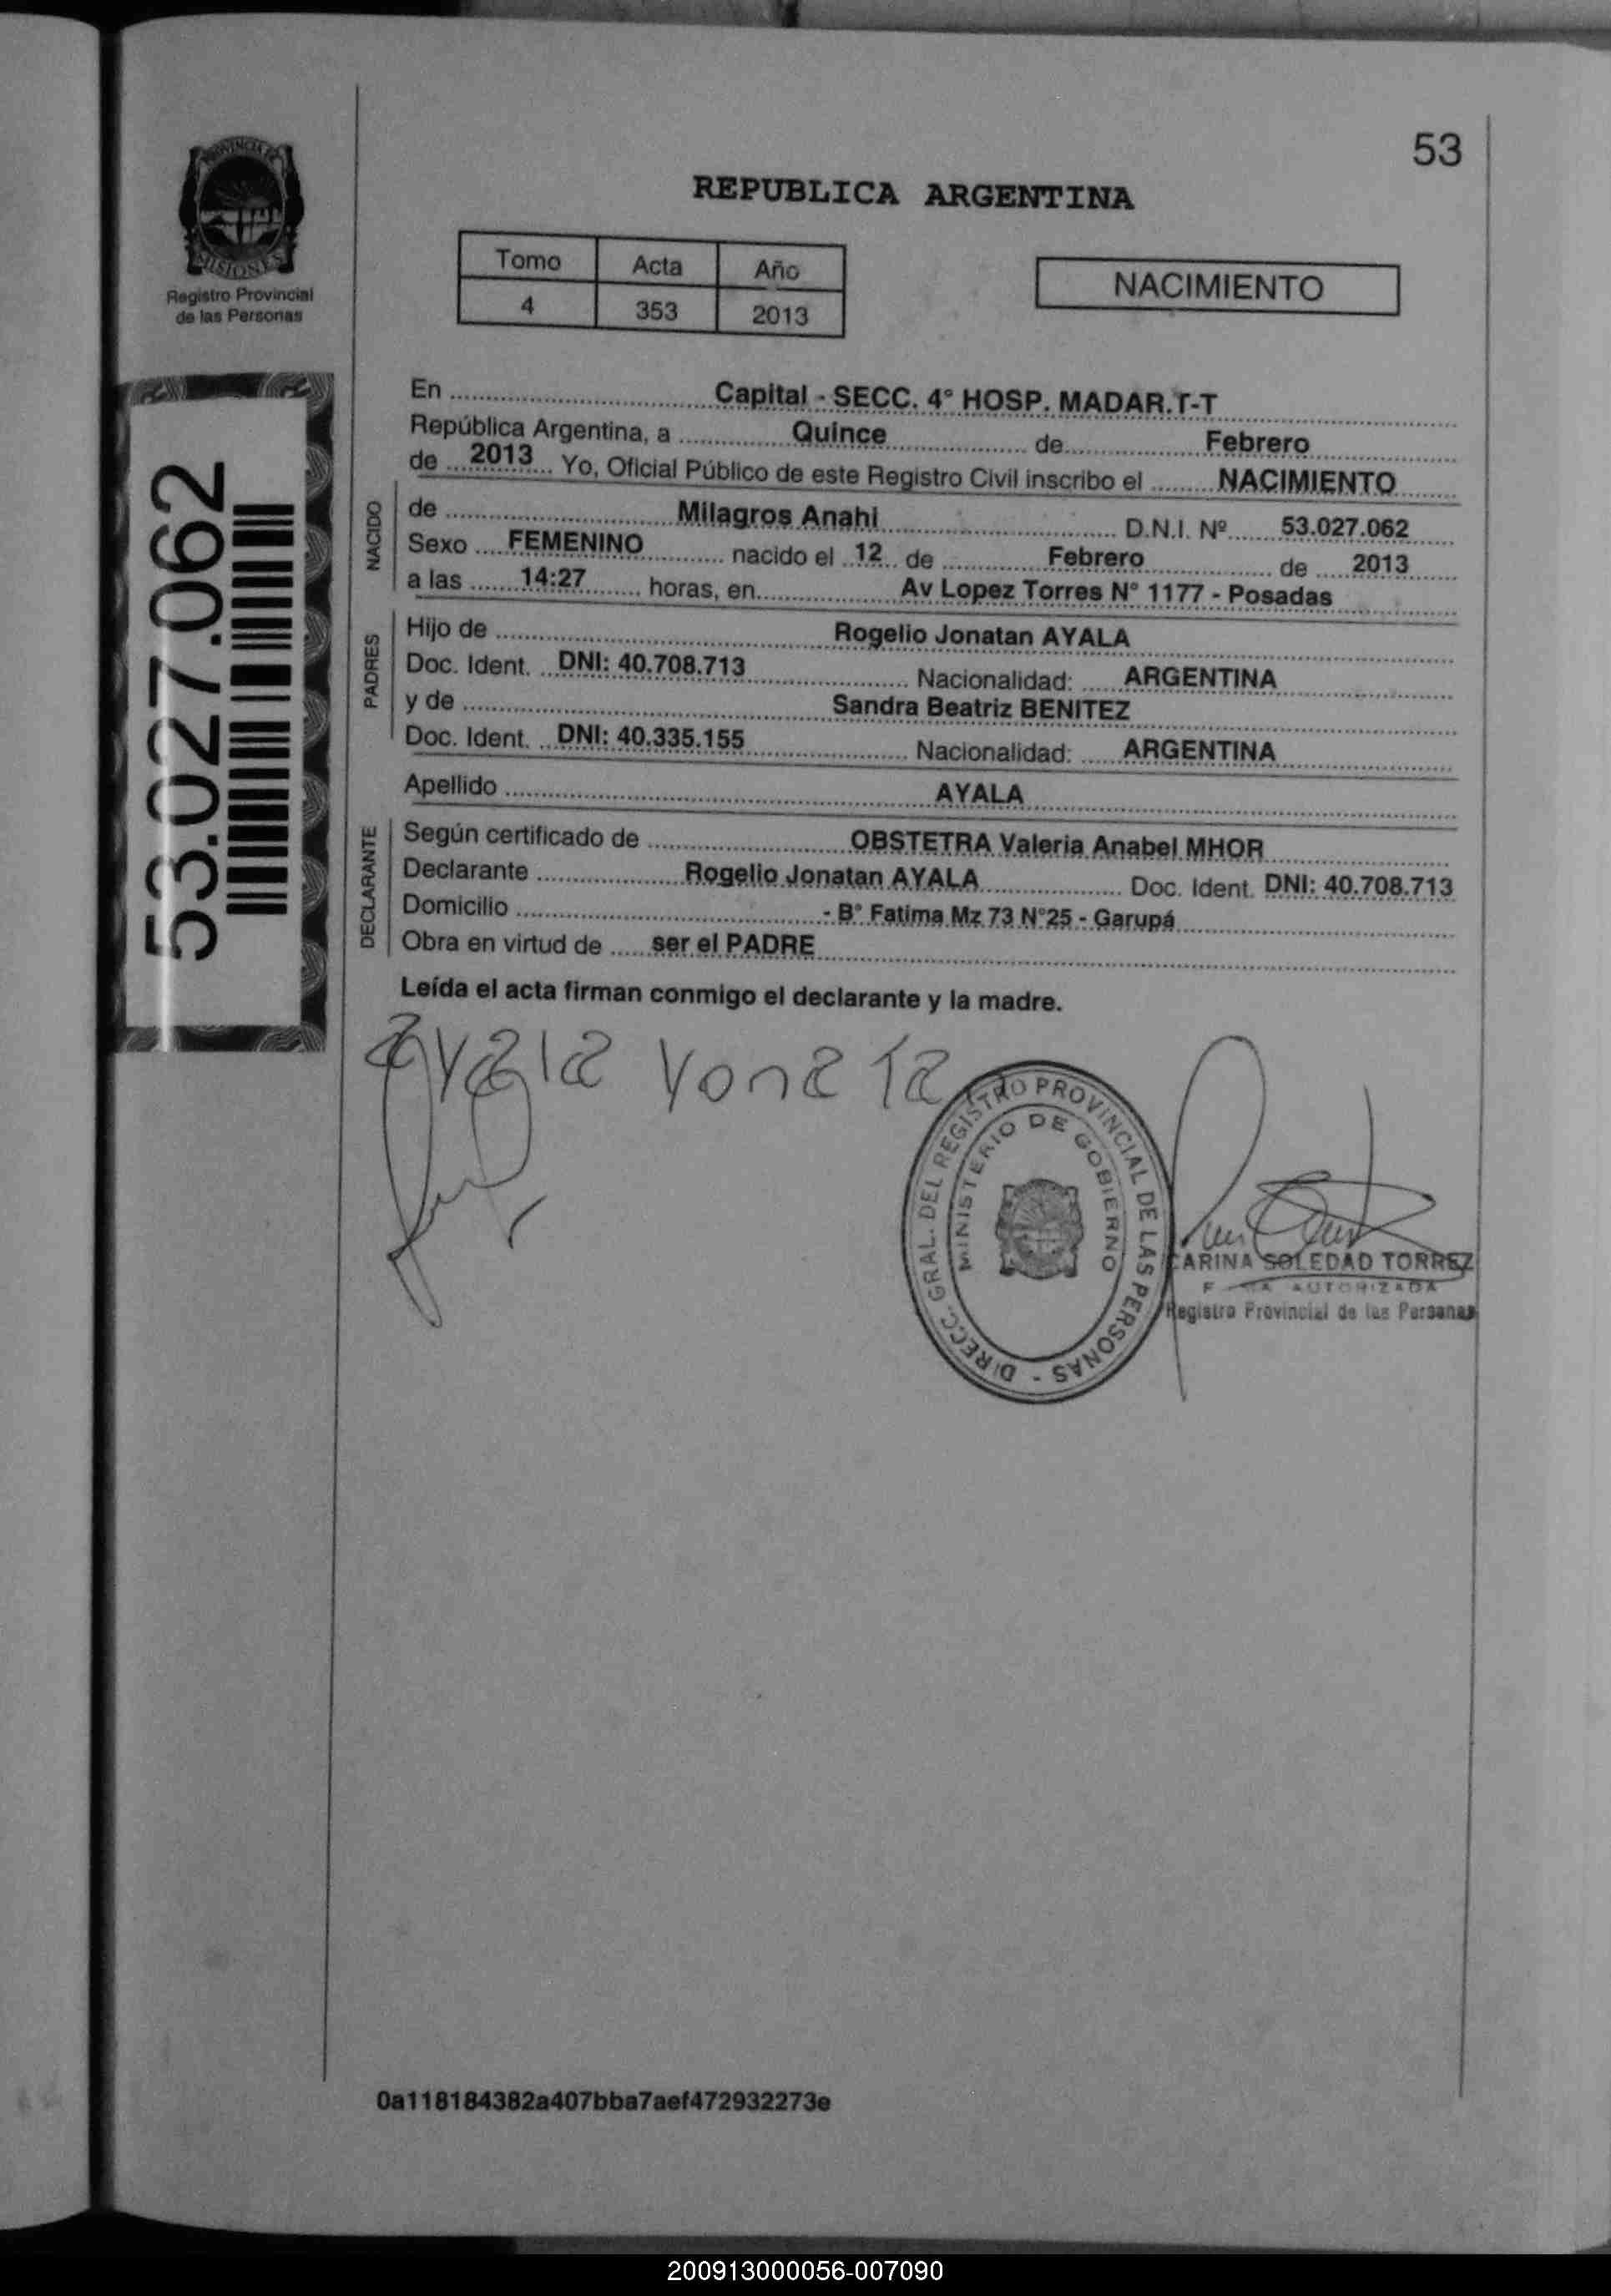 53
PROVINCIA DE
MISIONES
Registro Provincial
de las Personas
REPUBLICA ARGENTINA
Tomo Acta Año
4 353 2013
NACIMIENTO
53.027.062
En Capital - SECC. 4° HOSP. MADAR.T-T
República Argentina, a Quince de Febrero
de 2013 Yo, Oficial Público de este Registro Civil inscribo el NACIMIENTO
NACIDO
de Milagros Anahi D.N.I. Nº 53.027.062
Sexo FEMENINO nacido el 12 de Febrero de 2013
a las 14:27 horas, en Av Lopez Torres N° 1177 - Posadas
PADRES
Hijo de Rogelio Jonatan AYALA
Doc. Ident. DNI: 40.708.713 Nacionalidad: ARGENTINA
y de Sandra Beatriz BENITEZ
Doc. Ident. DNI: 40.335.155 Nacionalidad: ARGENTINA
Apellido AYALA
DECLARANTE
Según certificado de OBSTETRA Valeria Anabel MHOR
Declarante Rogelio Jonatan AYALA Doc. Ident. DNI: 40.708.713
Domicilio - B° Fatima Mz 73 N°25 - Garupá
Obra en virtud de ser el PADRE
Leída el acta firman conmigo el declarante y la madre.
ayala yonata
DIRECC. GRAL. DEL REGISTRO PROVINCIAL DE LAS PERSONAS -
MINISTERIO DE GOBIERNO
CARINA SOLEDAD TORREZ
AUTORIZADA
Registro Provincial de las Personas
0a118184382a407bba7aef472932273e
200913000056-007090